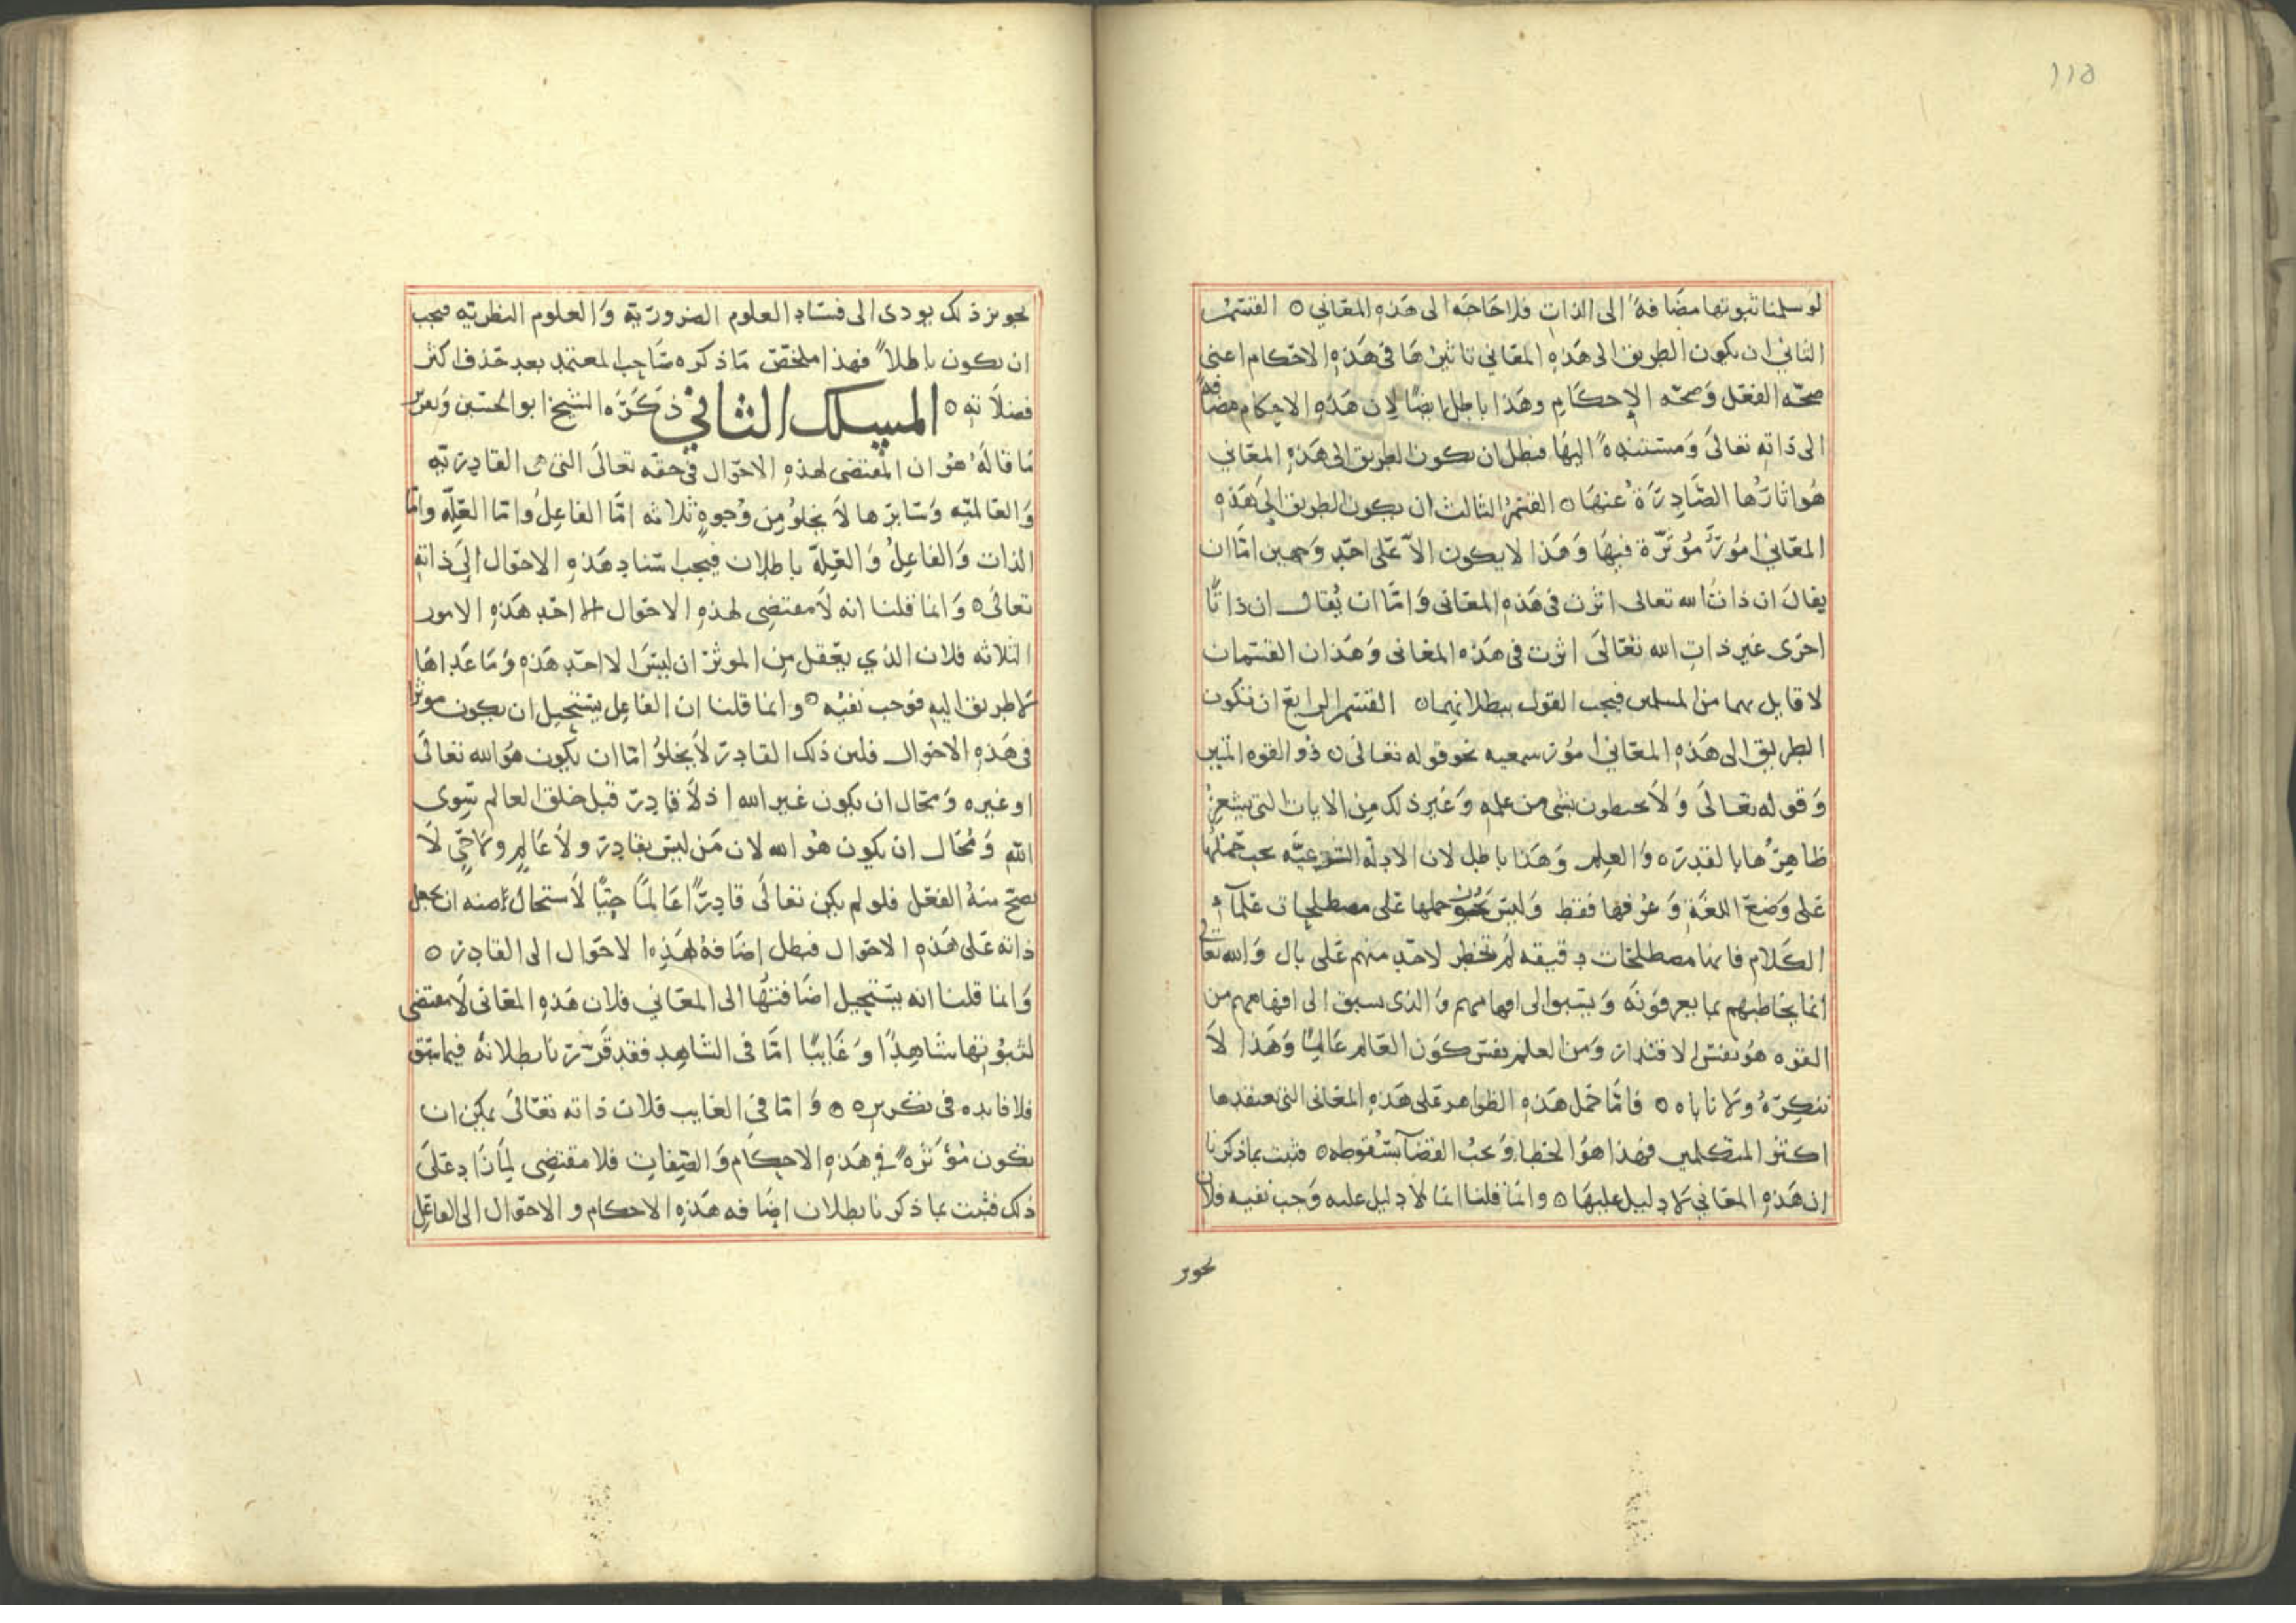 ١١٥
لو سلمنا ثبوتها مضافة الى الذات فلا حاجه الى هذه المعاني ٥ القسم
الثاني ان يكون الطريق الى هذه المعاني تاثيرها في هذه الاحكام اعنى
صحه الفعل وصحه الإحكام وهذا باطل ايضًا لان هذه الاحكام مضافة
الى ذاته تعالى ومستندة اليها فبطل ان يكون الطريق الى هذه المعاني
هو اثارها الصادرة عنها ٥ القسم الثالث ان يكون الطريق الى هذه
المعاني امورًا مؤثرة فيها وهذا لا يكون الا على احد وجهين اما ان
يقال ان ذات الله تعالى اثرت في هذه المعانى واما ان يقال ان ذاتًا
اخرى غير ذات الله تعالى اثرت في هذه المعانى وهذان القسمان
لا قايل بهما من المسلمين فيجب القول ببطلانهما ٥ القسم الرابع ان تكون
الطريق الى هذه المعاني امور سمعيه نحو قوله تعالى ٥ ذو القوه المتين
وقوله تعالى ولا يحيطون بشى من علمه وغير ذلك من الايات التى يشعر
ظاهرها بالقدرة ٥ والعلم وهذا باطل لان الادلة الشرعيه يجب حملها
على وضع اللغة وعرفها فقط وليس يجوز حملها على مصطلحات علمآء
الكلام فانها مصطلحات دقيقه لم تخطر لاحد منهم على بال والله تعالى
انما يخاطبهم بما يعرفونه ويسبق الى افهامهم والذى يسبق الى افهامهم من
القوه هو نفس الاقتدار ومن العلم نفس كون العالم عالمًا وهذا لا
ننكره ولا ناباه ٥ فاما حمل هذه الظواهر على هذه المعانى التى يعتقدها
اكثر المتكلمين فهذا هو الخطا ويجب القضآ بسقوطه ٥ فثبت بما ذكرنا
ان هذه المعاني لا دليل عليها ٥ وانما قلنا ان ما لا دليل عليه وجب نفيه فلان
تجويز
تجويز ذلك يودى الى فساد العلوم الضروريه والعلوم النظريه فيجب
ان يكون باطلاً فهذا ملخص ما ذكره صاحب المعتمد بعد حذف اكثر
فضلاته ٥ المسلك الثاني ذكره الشيخ ابو الحسين وتقرير
ما قاله هو ان المقتضى لهذه الاحوال في حقه تعالى التى هى القادريه
والعالميه وسايرها لا يخلو من وجوه ثلاثه اما الفاعل واما العله واما
الذات والفاعل والعله باطلان فيجب اسناد هذه الاحوال الى ذاته
تعالى ٥ وانما قلنا انه لا مقتضى لهذه الاحوال الا احد هذه الامور
الثلاثه فلان الذي يعقل من الموثر ان ليس الا احد هذه وما عداها
لا طريق اليه فوجب نفيه ٥ وانما قلنا ان الفاعل يستحيل ان يكون موثرا
في هذه الاحوال فلان ذلك القادر لا يخلو اما ان يكون هو الله تعالى
او غيره ومحال ان يكون غير الله اذ لا قادر قبل خلق العالم سوى
الله ومحال ان يكون هو الله لان من ليس بقادر ولا عالم ولا حي لا
يصح منه الفعل فلو لم يكن تعالى قادرًا عالمًا حيًا لاستحال منه ان يجعل
ذاته على هذه الاحوال فبطل اضافة هذه الاحوال الى القادر ٥
وانما قلنا انه يستحيل اضافتها الى المعاني فلان هذه المعانى لا مقتضى
لثبوتها شاهدًا وغايبًا اما في الشاهد فقد قررنا بطلانه فيما سبق
فلا فايده في تكريره ٥ واما في الغايب فلان ذاته تعالى يمكن ان
تكون مؤثرة في هذه الاحكام والصفات فلا مقتضى لما زاد على
ذلك فثبت بما ذكرنا بطلان اضافه هذه الاحكام والاحوال الى الفاعل